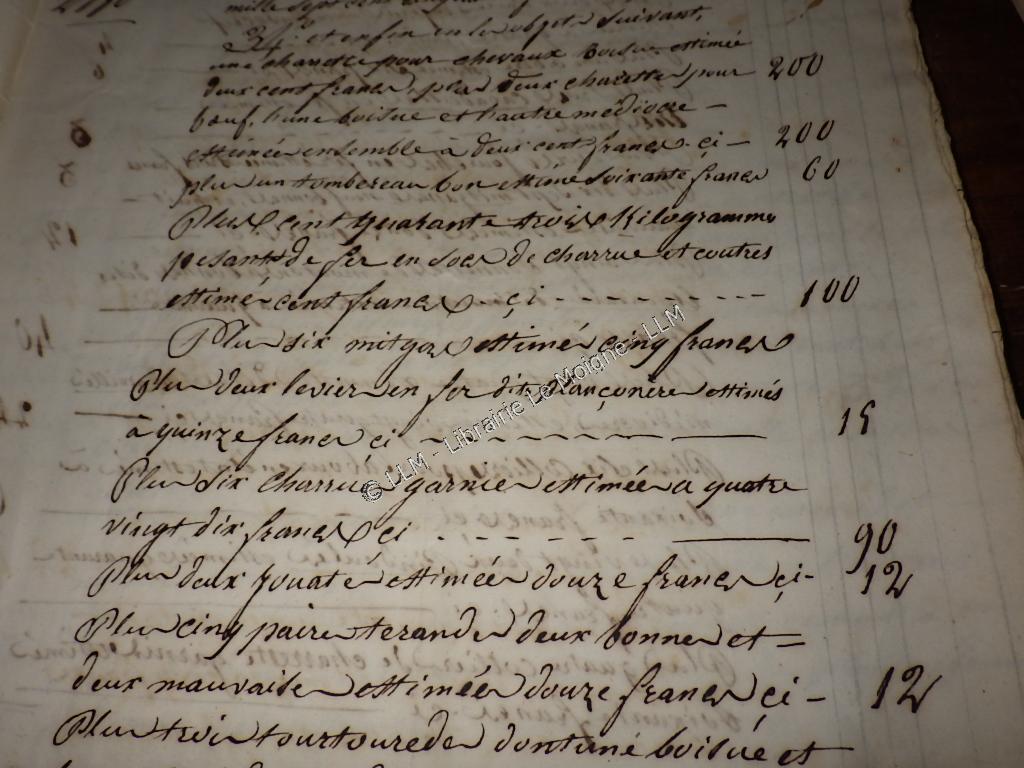 mille sept cent
3°. et enfin en les objets suivant,
une charette pour chevaux boisue ettimée
deux cent francs, plus deux charettes pour 200
bœuf, l'une boisue et l'autre médiocre —
ettimée ensemble à deux cent francs ci — 200
plus un tombereau bon ettimé soixante francs 60
Plus cent quarante trois Kilogrammes
pesant de fer en socs de charrue et coutres
ettimé cent francs ci - - - - - - - - 100
Plus six mitgos ettimé cinq francs
Plus deux levier en fer dits ettimés
à quinze francs ci - - - - - - - - — 15
Plus six charrues garnie ettimée a quatre
vingt dix francs ci - - - - - - — 90
Plus deux ettimée douze francs ci - 12
Plus cinq paire terande deux bonne et —
deux mauvaise ettimée douze francs ci - 12
Plus trois tourtourede dont une boisué et
© LLM - Librairie Le Moigne - LLM